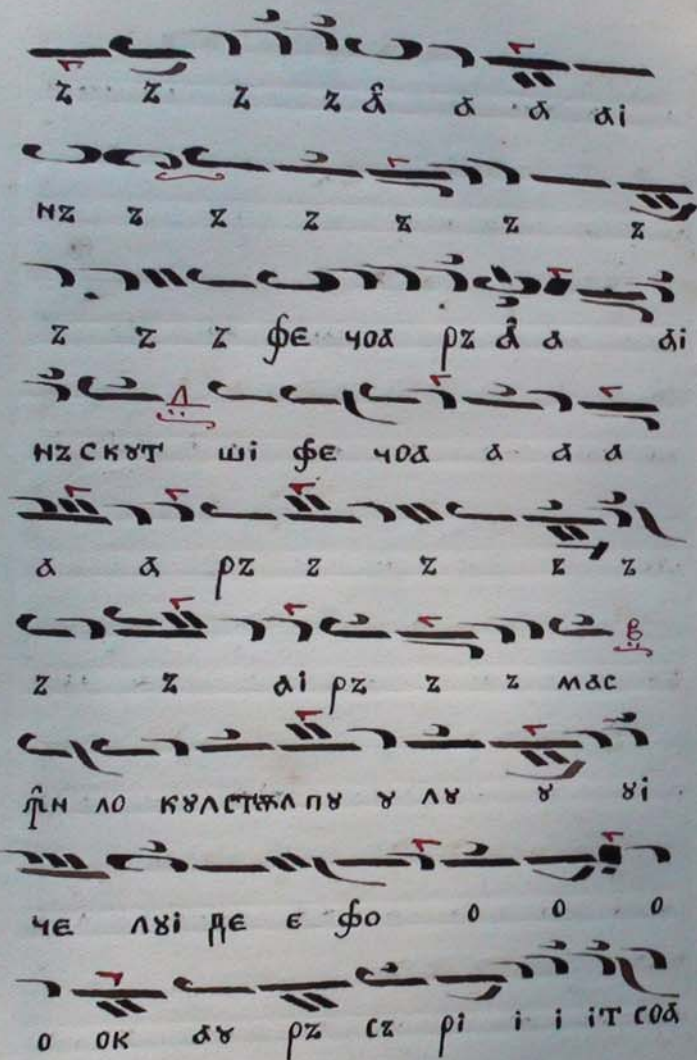 ъ ъ ъ ъ а а а аі
нъ ъ ъ ъ ъ ъ ъ
ъ ъ ъ фє чоа ръ а а аі
нъ скꙋт ші фє чоа а а а
а а ръ ъ ъ ъ ъ
ъ ъ аі ръ ъ ъ мас
ꙟн ло кꙋл стѫл пꙋ ꙋ лꙋ ꙋ ꙋі
чє лꙋі дє є фо о о о
о ок аꙋ ръ съ рі і і іт соа